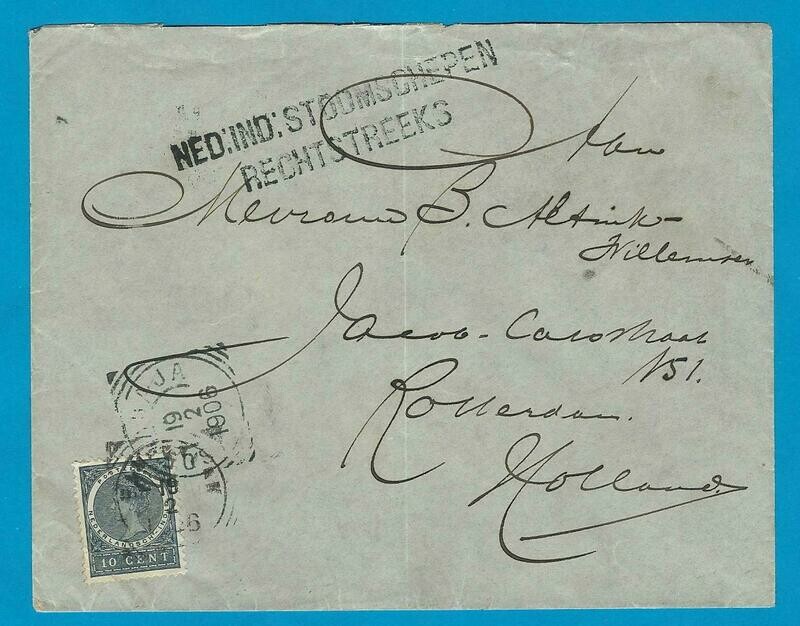 NED: IND: STOOMSCHEPEN
RECHTSTREEKS
Aan
Mevrouw B. Altink-
Willemsen
Jacob-Catsstraat
N51.
Rotterdam.
Holland.
JA
19
2
1906
2
NEDERLANDSCH-INDIË
10 CENT